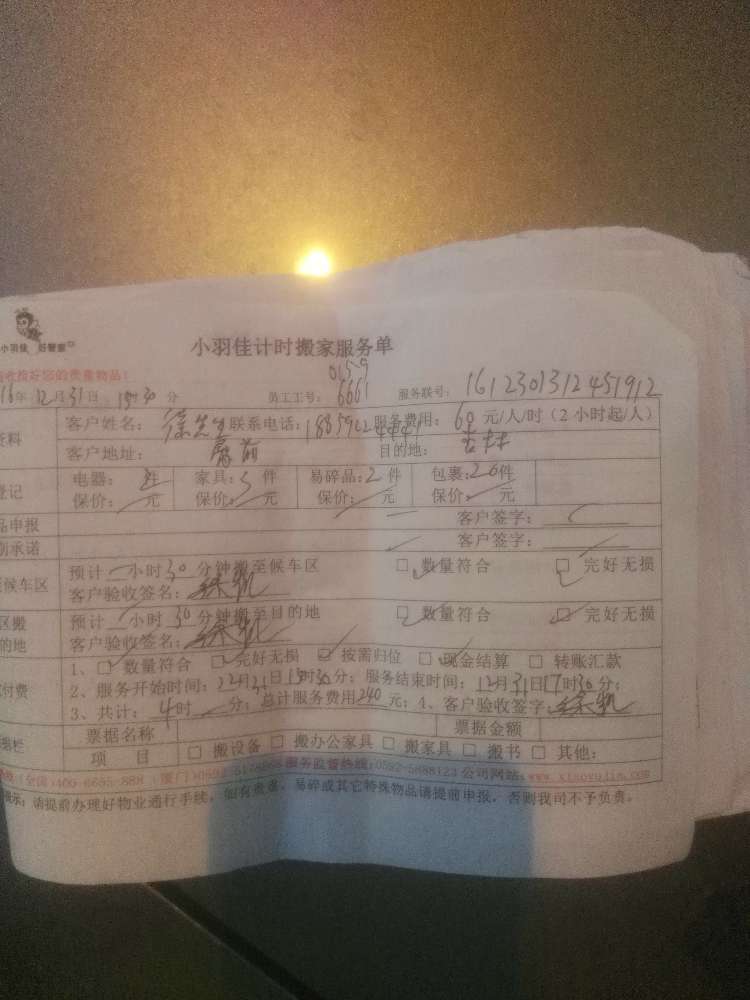 小羽佳 好管家
小羽佳计时搬家服务单
验收按好您的贵重物品！
0159
16年12月31日 时30分 员工工号：6661 服务联号：1612301312451912
资料 客户姓名：徐先生 联系电话： 服务费用：60元/人/时（2小时起/人）
客户地址： 目的地：
登记 电器： 件 家具：5件 易碎品：2件 包裹：26件
保价： 元 保价： 元 保价： 元 保价： 元
品申报 客户签字：
别承诺 客户签字：
候车区 预计 小时30分钟搬至候车区 □数量符合 □完好无损
客户验收签名：
区搬 预计 小时30分钟搬至目的地 □数量符合 □完好无损
的地 客户验收签名：
付费 1、□数量符合 □完好无损 □按需归位 □现金结算 □转账汇款
2、服务开始时间：12月31日15时30分；服务结束时间：12月31日17时30分；
3、共计：4时 分；总计服务费用240元；4、客户验收签字：
票据名称 票据金额
项 目 □搬设备 □搬办公家具 □搬家具 □搬书 □其他：
（全国）400-6655-888（厦门）0592-5178868 服务监督热线：0592-5688123 公司网站：www.xiaoyujia.com
提示：请提前办理好物业通行手续，如有贵重、易碎或其它特殊物品请提前申报，否则我司不予负责。